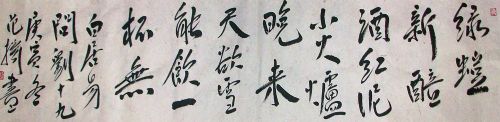 綠螘
新醅
酒紅泥
小火爐
晚来
天欲雪
能飲一
杯無
白居易
問劉十九
庚寅冬
書